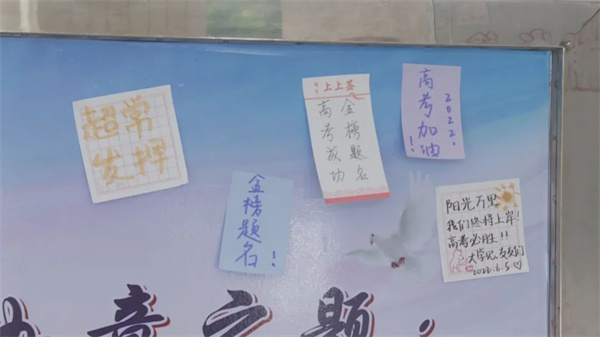 超常
发挥
金榜题名!
上上签
金榜题名
高考成功
2022.
高考加油!
阳光万里
我们终将上岸!
高考必胜!!
友友们
2022.6.5♡
题